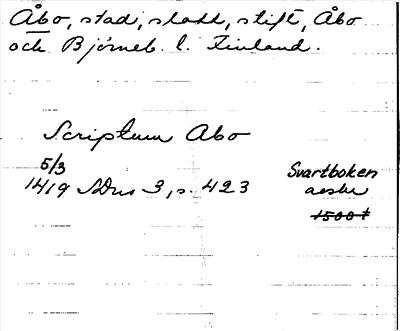 Åbo, stad, slott, stift, Åbo
och Björneb. l. Finland.
Scriptum Abo
5/3
1419 SDns 3, s. 423
Svartboken
1500 t